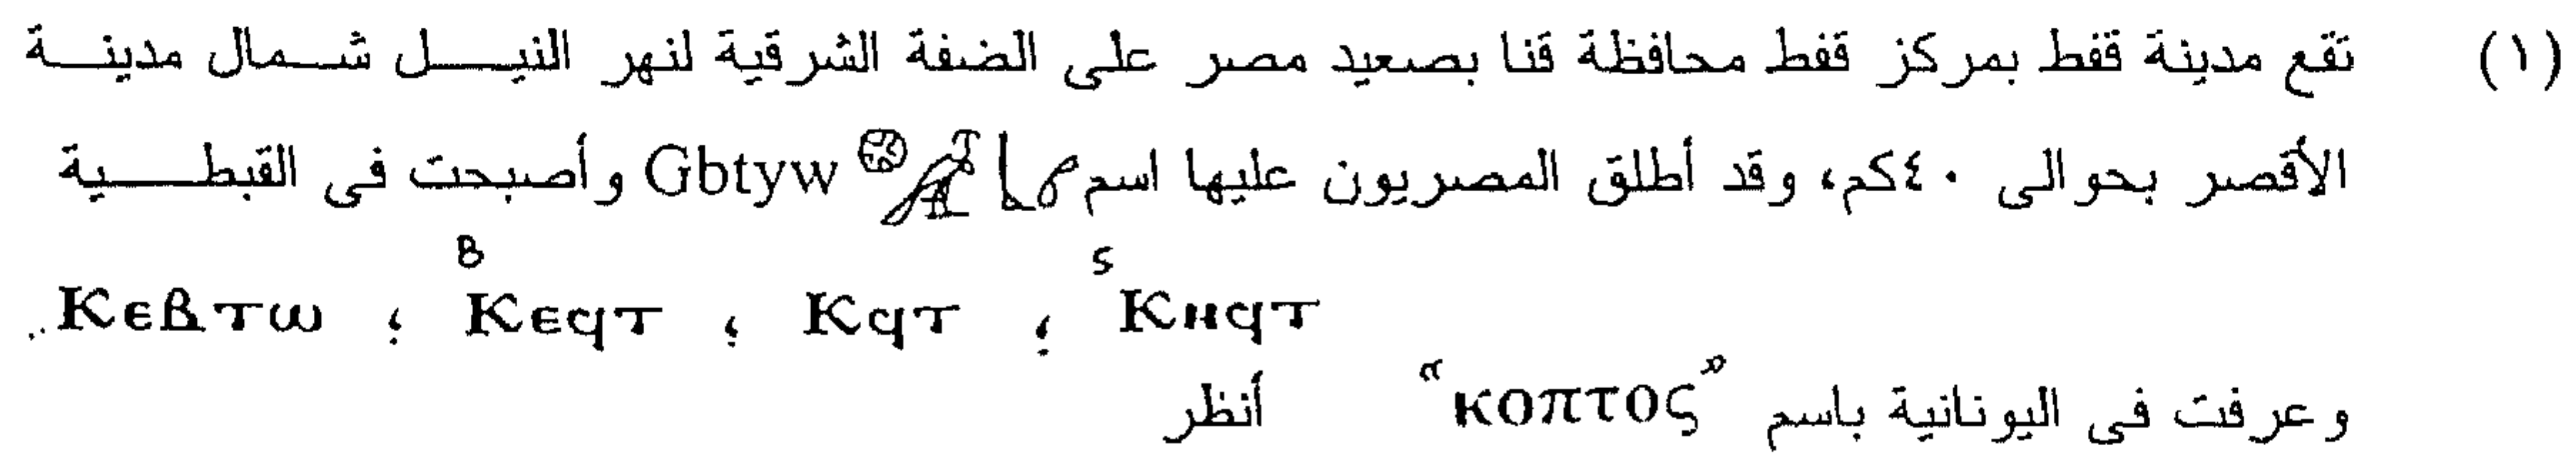 (١) تقع مدينة قفط بمركز قفط محافظة قنا بصعيد مصر على الضفة الشرقية لنهر النيل شمال مدينة
الأقصر بحوالى ٤٠كم، وقد أطلق المصريون عليها اسم Gbtyw وأصبحت فى القبطية
ⲔⲏϥⲧS ؛ Ⲕϥⲧ ؛ ⲔⲉϥⲧB ؛ Ⲕⲉⲃⲧⲱ ..
وعرفت فى اليونانية باسم "κοπτος" أنظر